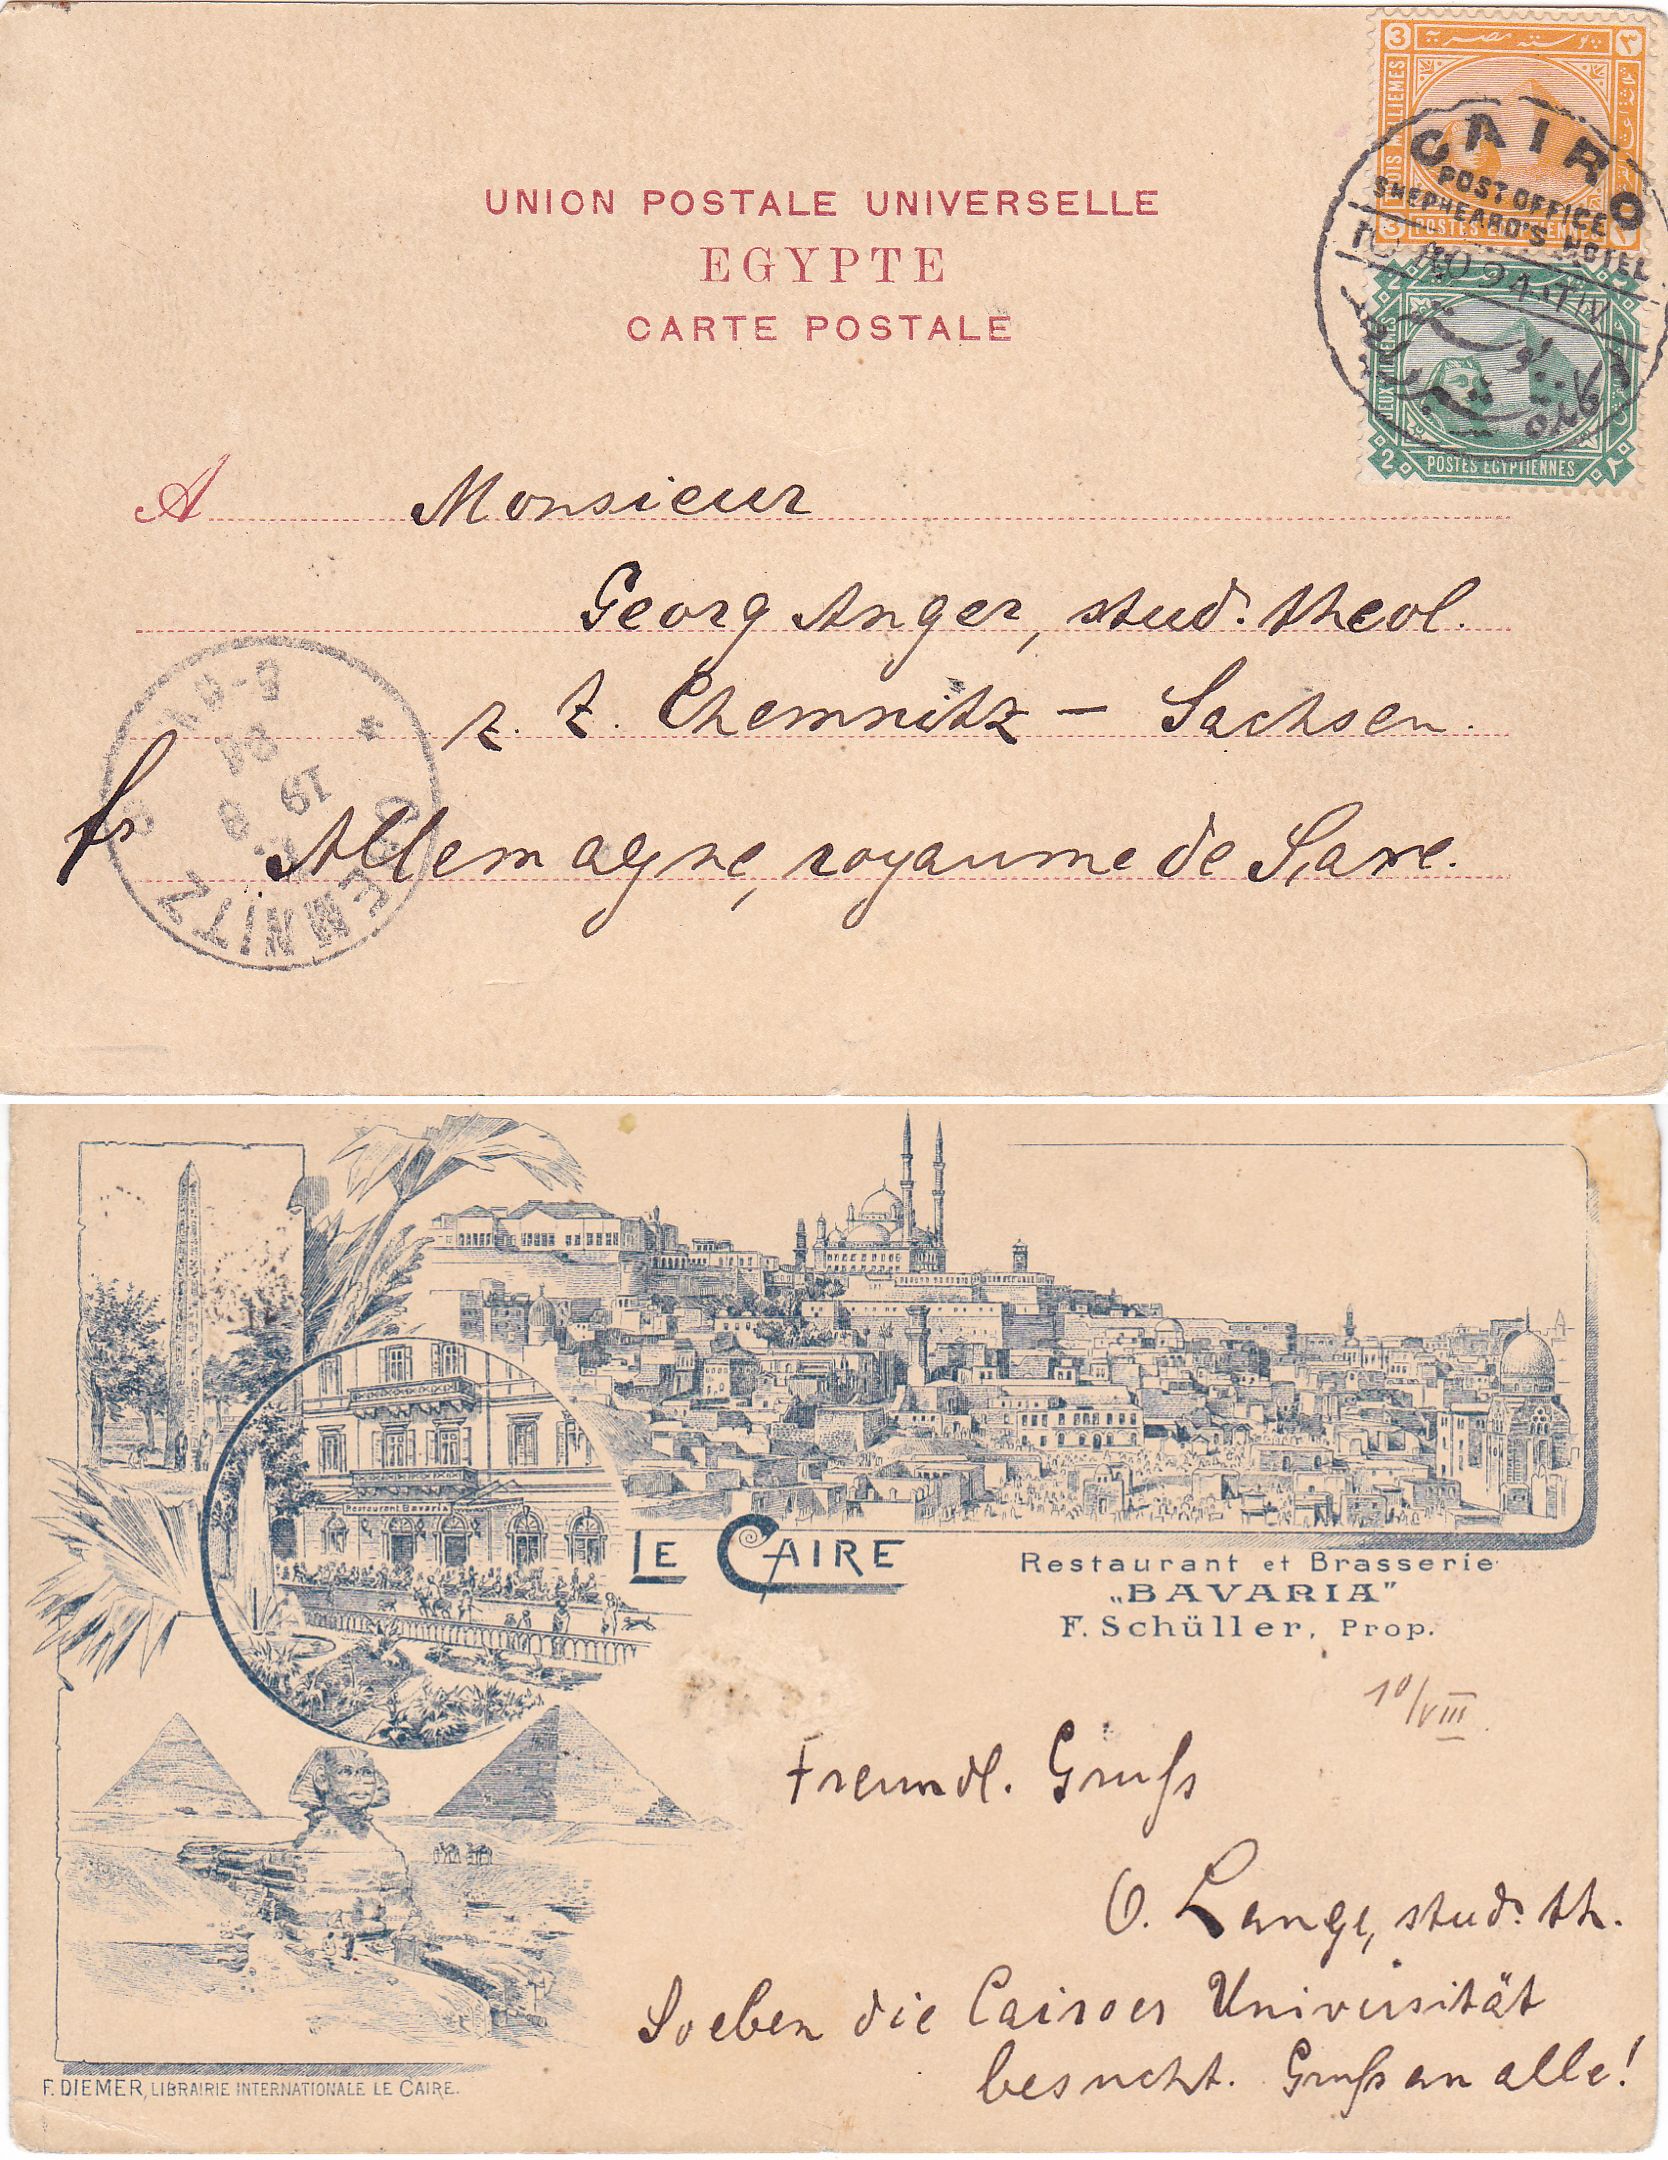 UNION POSTALE UNIVERSELLE
EGYPTE
CARTE POSTALE
3 بوسته مصريه ٣
TROIS MILLIEMES
3 POSTES EGYPTIENNES
CAIRO
POST OFFICE
SHEPHEARD'S HOTEL
94
DEUX MILLIEMES
2 POSTES EGYPTIENNES ٢
A Monsieur
Georg Anger, stud. theol.
z. Z. Chemnitz – Sachsen.
fr Allemagne, royaume de Saxe.
CHEMNITZ
19
8
94
Restaurant Bavaria
LE CAIRE
Restaurant et Brasserie
„BAVARIA"
F. Schüller, Prop.
10/VIII
Freundl. Gruß
O. Lange, stud. th.
Soeben die Cairoer Universität
besucht. Gruß an alle!
F. DIEMER, LIBRAIRIE INTERNATIONALE LE CAIRE.